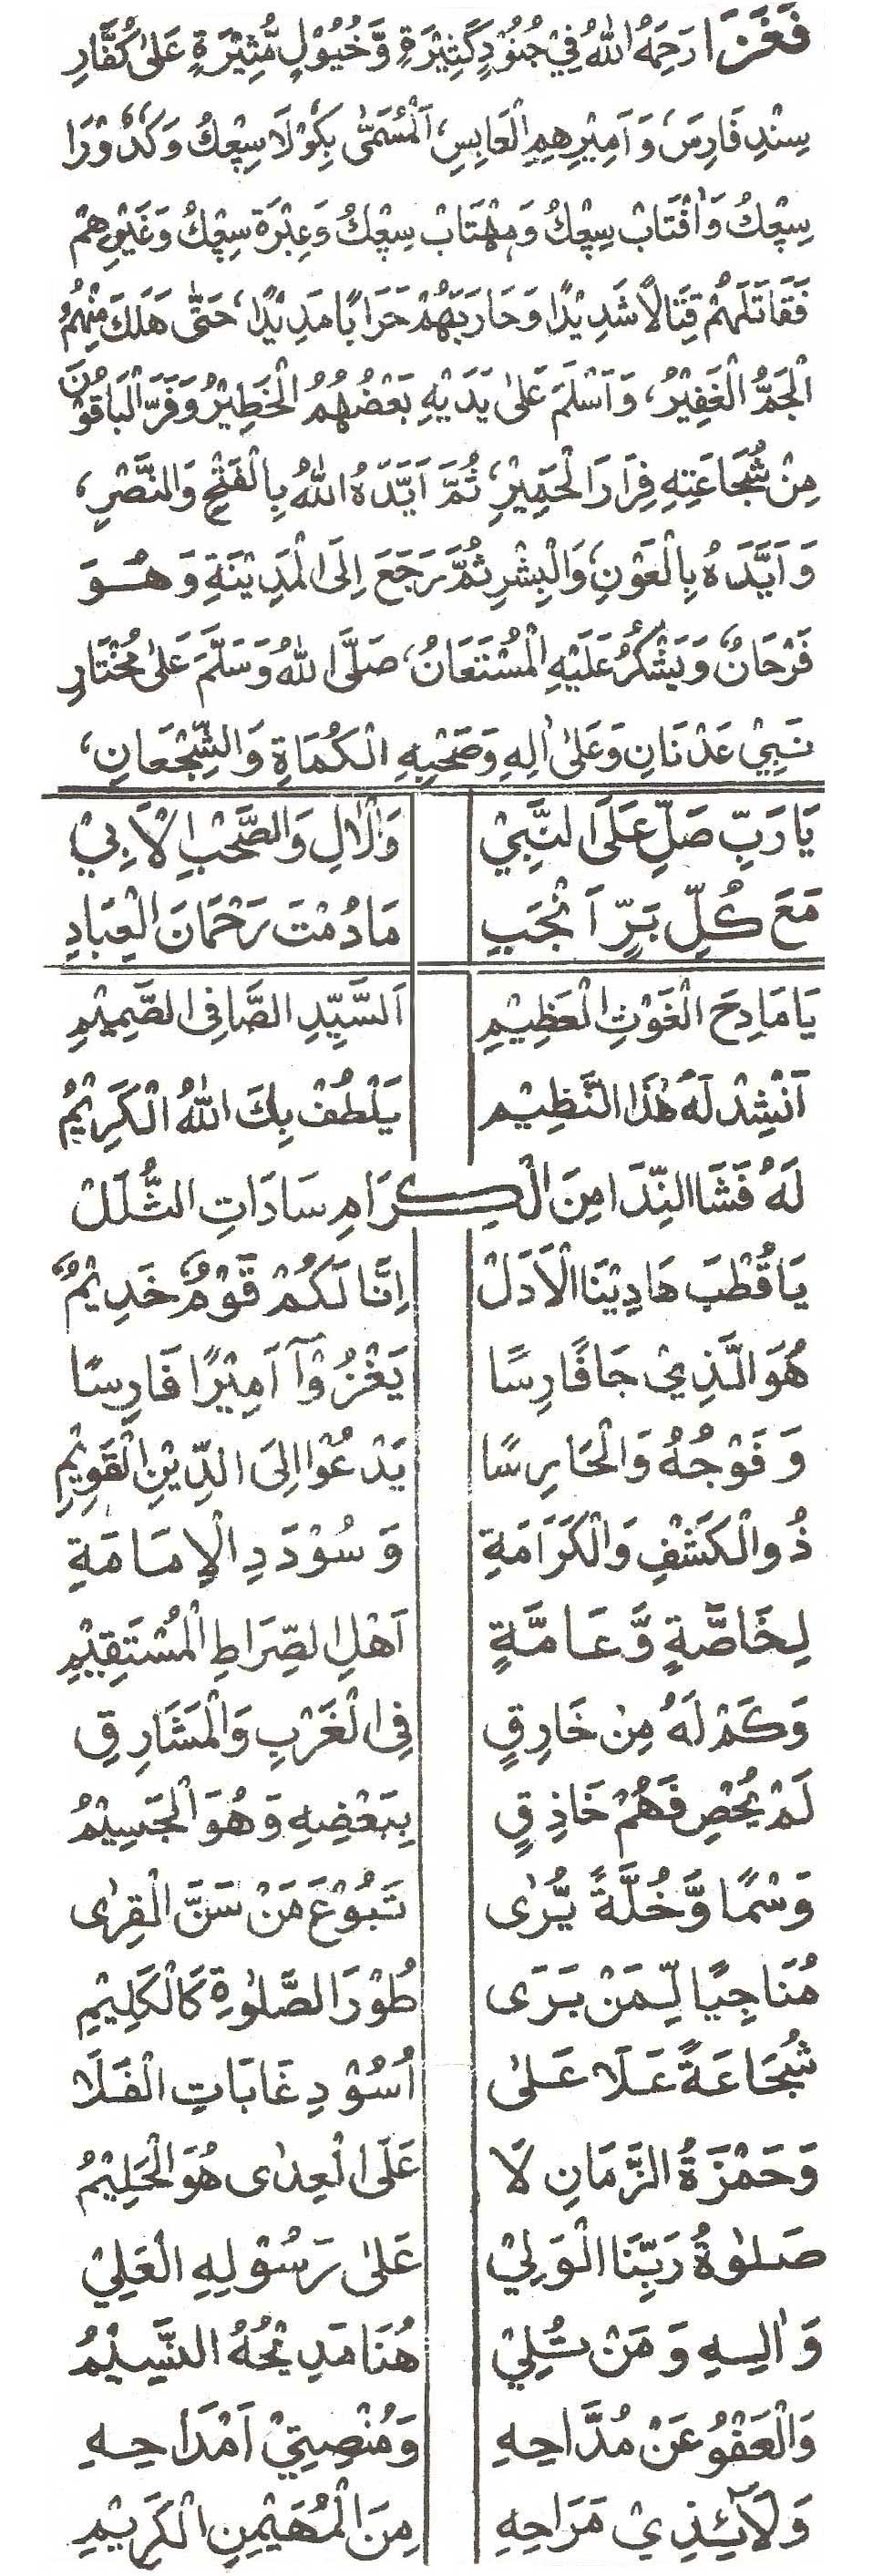 فَغَزَا رَحِمَهُ اللهُ فِيْ جُنُوْدٍ كَثِيْرَةٍ وَّخُيُوْلٍ مُّثِيْرَةٍ عَلٰى كُفَّارِ
سِنْدِ فَارِسَ، وَاَمِيْرِهِمِ الْعَابِسِ، اَلْمُسَمّٰى بِكَوْلَا سِنْعِكْ وَكَدْوْرَا
سِنْعِكُ وَاٰفْتَابْ سِنْعِكُ وَمِهْتَابْ سِنْعِكُ وَعِبْرَةِ سِنْعِكُ وَغَيْرِهِمْ
فَقَاتَلَهُمْ قِتَالًا شَدِيْدًا وَحَارَبَهُمْ حَرَابًا مَدِيْدًا، حَتّٰى هَلَكَ مِنْهُمُ
الْجَمُّ الْغَفِيْرُ، وَاَسْلَمَ عَلٰى يَدَيْهِ بَعْضُهُمُ الْخَطِيْرُ وَفَرَّ الْبَاقُوْنَ
مِنْ شُجَاعَتِهِ فِرَارَ الْحَمِيْرِ، ثُمَّ اَيَّدَهُ اللهُ بِالْفَتْحِ وَالنَّصْرِ،
وَاَيَّدَهُ بِالْعَوْنِ، وَالْبِشْرِ ثُمَّ رَجَعَ اِلَى الْمَدِيْنَةِ وَهُوَ
فَرْحَانٌ، وَيَشْكُرُ عَلَيْهِ الْمُسْتَعَانُ، صَلَّى اللهُ وَسَلَّمَ عَلٰى مُخْتَارِ
نَبِيْ عَدْنَانِ وَعَلٰى اٰلِهِ وَصَحْبِهِ الْكُمَاةِ وَالشِّجْعَانِ،
يَا رَبِّ صَلِّ عَلَى النَّبِيْ وَالْاٰلِ وَالصَّحْبِ الْاَبِيْ
مَعَ كُلِّ بَرٍّ اَنْجَبِ مَادُمْتَ رَحْمَانَ الْعِبَادِ
يَا مَادِحَ الْغَوْثِ الْعَظِيْمِ اَلسَّيِّدِ الصَّافِى الصَّمِيْمِ
اَنْشِدْ لَهُ هٰذَا النَّظِيْمِ يَلْطُفْ بِكَ اللهُ الْكَرِيْمُ
لَهُ فَشَا النِّدَا مِنَ الْكِرَامِ سَادَاتِ الثُّلَلْ
يَا قُطْبَ هَادِيْنَا الْاَدَلْ اِنَّا لَكُمْ قَوْمٌ خَدِيْمٌ
هُوَ الَّذِيْ جَا فَارِسًا يَغْزُوْآ اَمِيْرًا فَارِسًا
وَفَوْجُهُ وَالْحَارِسًا يَدْعُوْا اِلَى الدِّيْنِ الْقَوِيْمِ
ذُو الْكَشْفِ وَالْكَرَامَةِ وَسُوْدَدِ الْاِمَامَةِ
لِخَاصَّةٍ وَّعَامَّةٍ اَهْلِ الصِّرَاطِ الْمُسْتَقِيْمِ
وَكَمْ لَهُ مِنْ خَارِقٍ فِى الْغَرْبِ وَالْمَشَارِقِ
لَمْ يُحْصِ فَهُمْ حَاذِقٍ بِبَعْضِهِ وَهُوَ الْجَسِيْمُ
وَسْمًا وَّحُلَّةً يُّرٰى تَبُوْعَ مَنْ سَنَّ الْقِرٰى
مُنَاجِيًا لِّمَنْ بَرَى طُوْرَ الصَّلٰوةِ كَالْكَلِيْمِ
شُجَاعَةً عَلَا عَلٰى اُسُوْدِ غَابَاتِ الْفَلَا
وَحَمْزَةُ الزَّمَانِ لَا عَلَى الْعِدٰى هُوَ الْحَلِيْمُ
صَلٰوةُ رَبِّنَا الْوَلِيْ عَلٰى رَسُوْلِهِ الْعَلِيْ
وَاٰلِهِ وَمَنْ تُلِيْ هُنَا مَدِيْحُهُ النَّسِيْمُ
وَالْعَفْوُ عَنْ مُدَّاحِهِ وَمُنْصِتِيْ اَمْدَاحِهِ
وَلَآئِذِيْ مَرَاحِهِ مِنَ الْمُهَيْمِنِ الْكَرِيْمِ